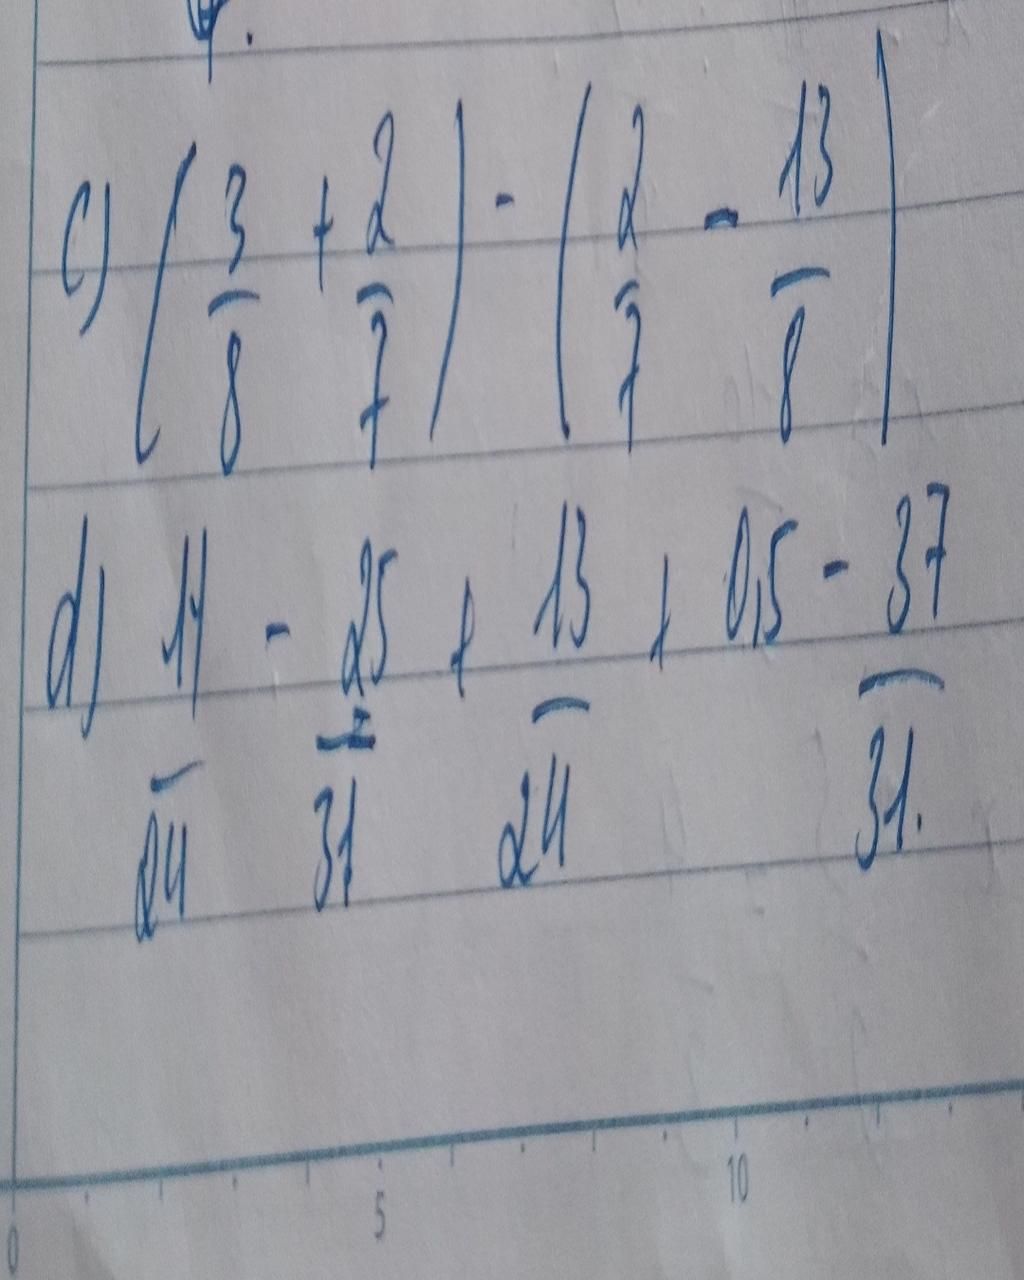 c) (3/8 + 2/7) - (2/7 - 13/8)
d) 11/24 - 25/31 + 13/24 + 0,5 - 37/31.
0 5 10